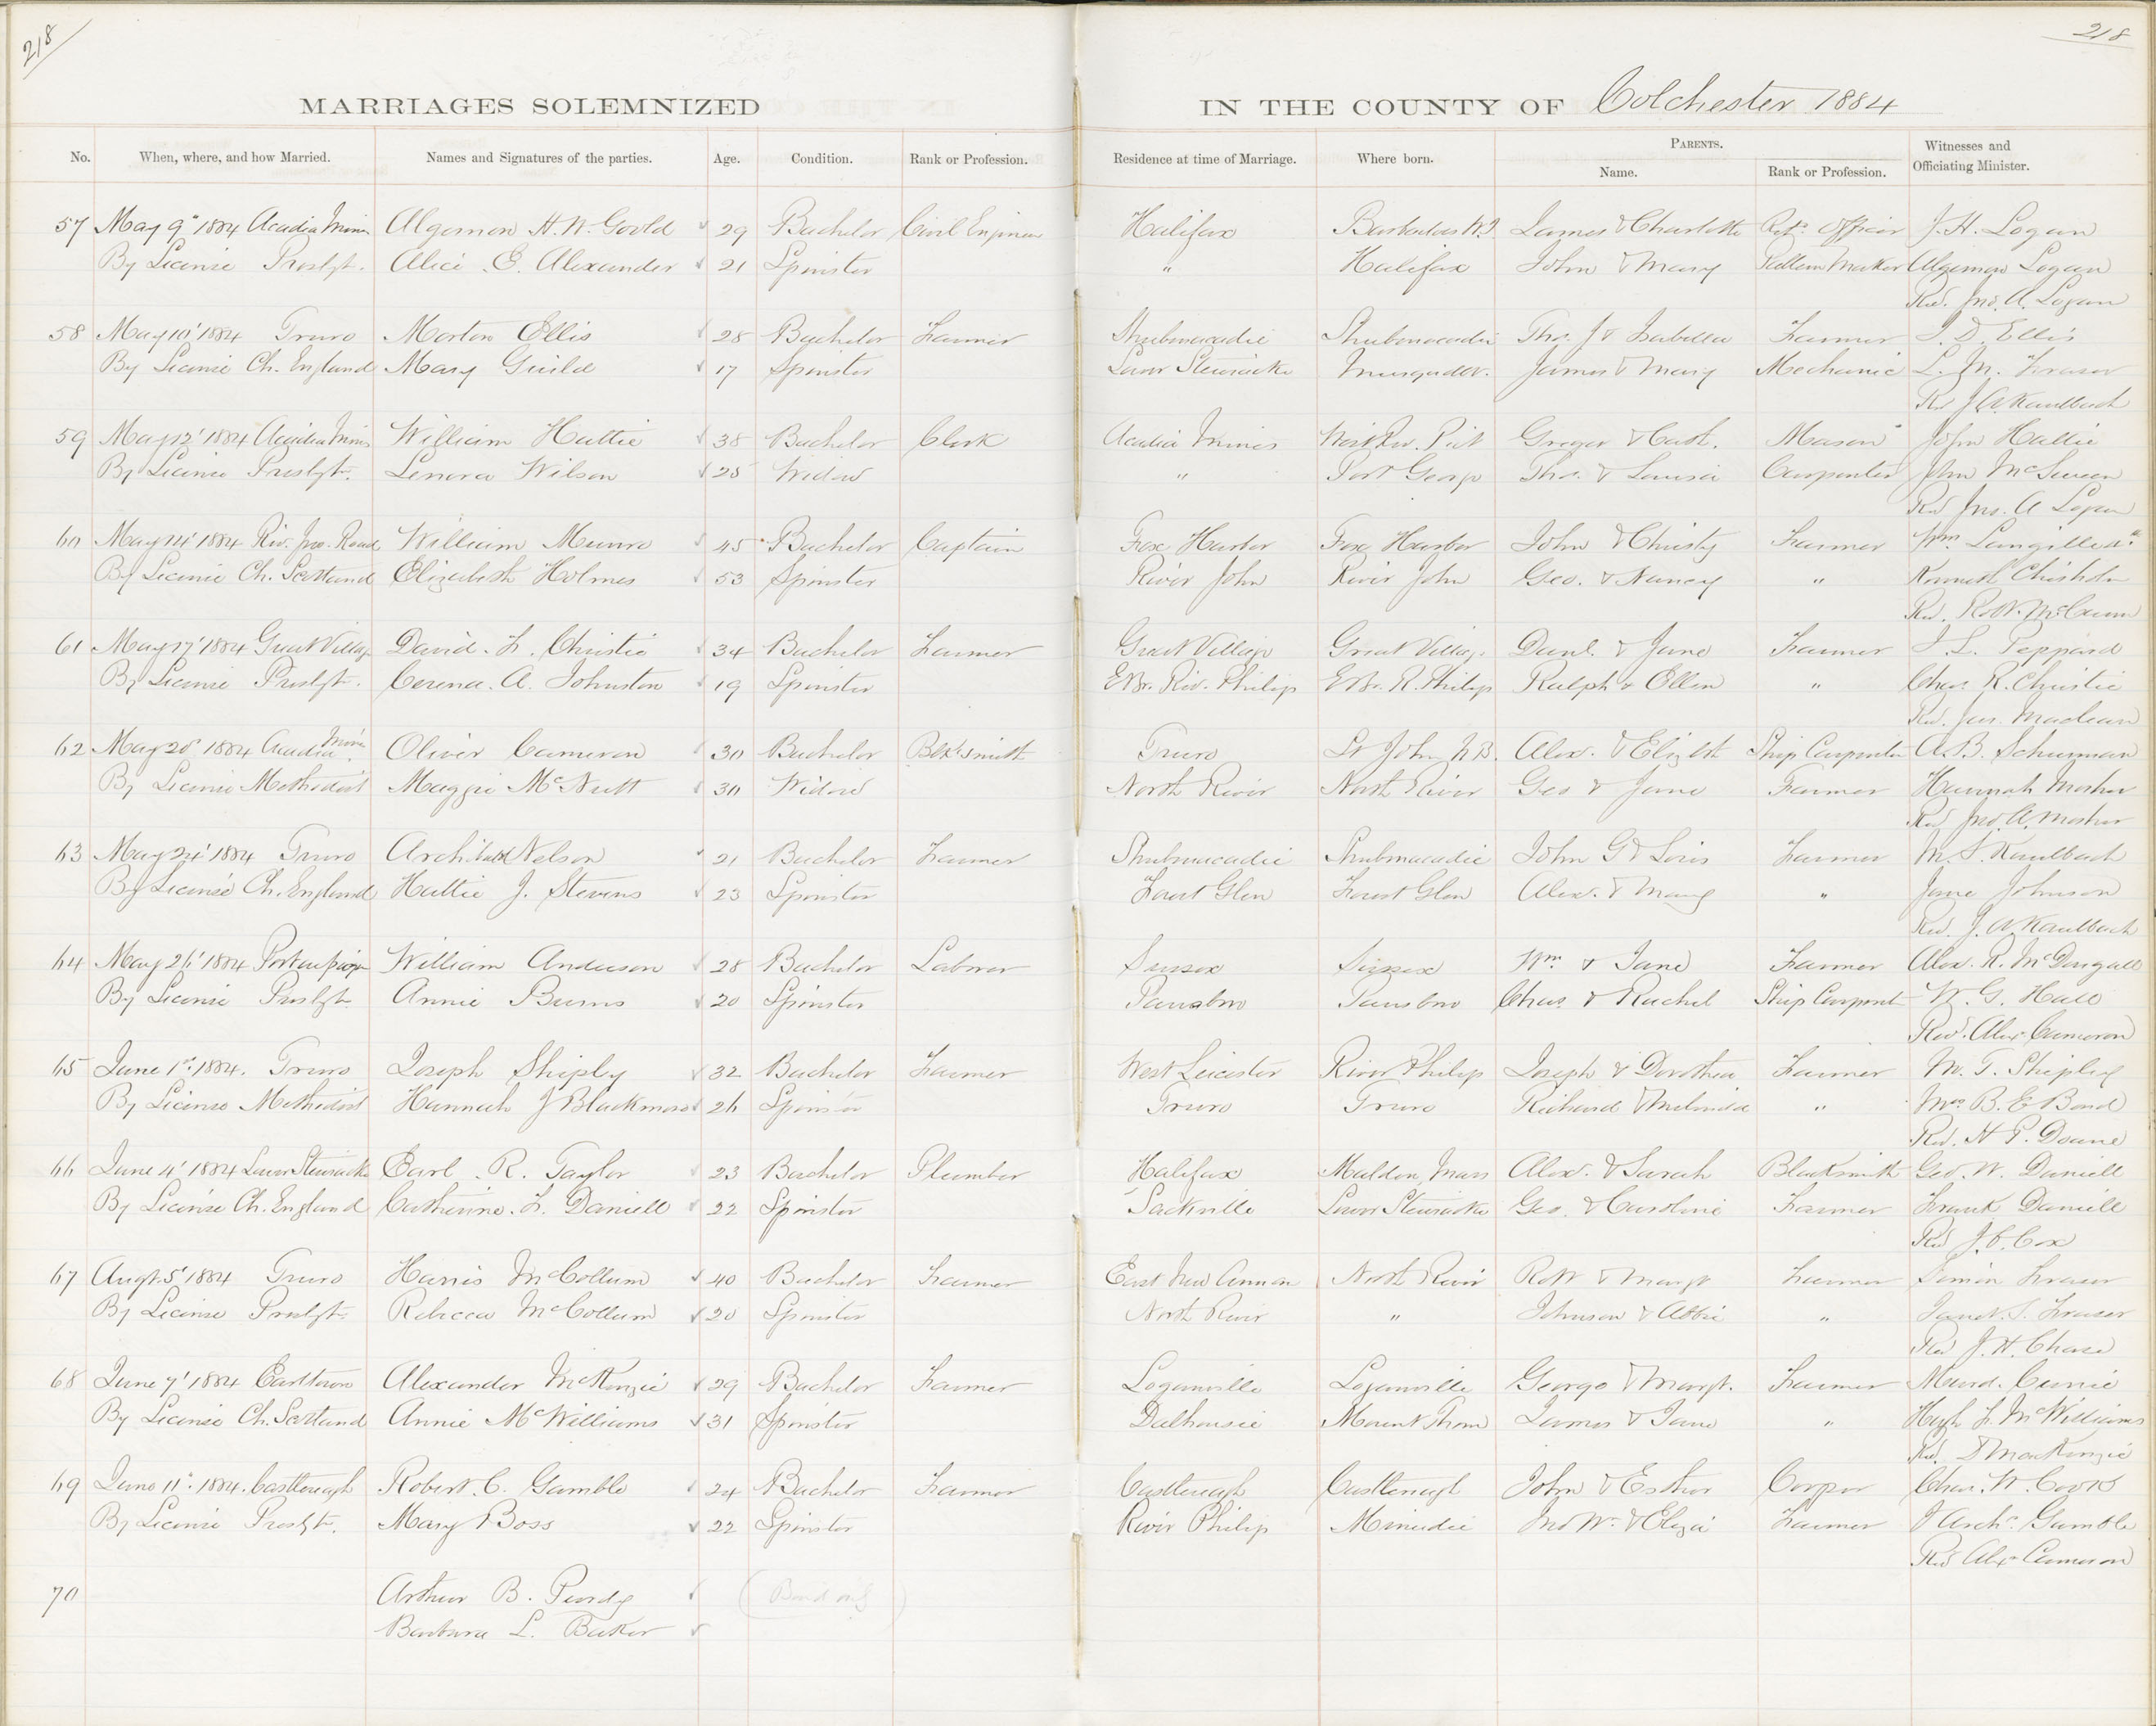 218
218
MARRIAGES SOLEMNIZED IN THE COUNTY OF Colchester 1884
No. When, where, and how Married. Names and Signatures of the parties. Age. Condition. Rank or Profession. Residence at time of Marriage. Where born. PARENTS. Name. Rank or Profession. Witnesses and Officiating Minister.
57 May 9" 1884 Acadia Mines Algernon H. W. Goold 29 Bachelor Civil Engineer Halifax Barbadoes W.I. James & Charlotte Retd Officer J. H. Logan
By License Presbyt. Alice E. Alexander 21 Spinster " Halifax John & Mary Pattern Maker Algernon Logan
Rev. Jno. A. Logan
58 May 10' 1884 Truro Morton Ellis 28 Bachelor Farmer Shubenacadie Shubenacadie Thos. J & Isabella Farmer J. D. Ellis
By License Ch. England Mary Guild 17 Spinster Lower Stewiacke Musquodot. James & Mary Mechanic L. M. Fraser
Rev J A Kaulbach
59 May 12' 1884 Acadia Mines William Hattie 38 Bachelor Clerk Acadia Mines West Riv. Pict Gregor & Cath. Mason John Hattie
By License Presbyt. Lenora Wilson 25 Widow " Port George Thos. & Louisa Carpenter John
Rev Jno. A Logan
60 May 14' 1884 Riv. Jno. Road William Munro 45 Bachelor Captain Fox Harbor Fox Harbor John & Christy Farmer Wm Langille
By License Ch. Scotland Elizabeth Holmes 53 Spinster River John River John Geo. & Nancy " Kenneth Chisholm
Rev. R. McCunn
61 May 17' 1884 Great Village David. F. Christie 34 Bachelor Farmer Great Village Great Village Danl. & Jane Farmer J. L. Peppard
By License Presbyt. Cerena. A. Johnston 19 Spinster E Br. Riv. Philip E Br. R. Philip Ralph & Ellen " Chas R. Christie
Rev. Jas. Maclean
62 May 20' 1884 Acadia Mine Oliver Cameron 30 Bachelor Blksmith Truro St John N.B. Alex. & Elizbth Ship Carpenter A. B. Schurman
By License Methodist Maggie McNutt 30 Widow North River North River Geo & Jane Farmer Hannah Mosher
Rev Jno. A. Mosher
63 May 24' 1884 Truro Archibald Nelson 21 Bachelor Farmer Shubenacadie Shubenacadie John G & Lois Farmer M. S. Kaulbach
By License Ch. England Hattie J. Stevens 23 Spinster Forest Glen Forest Glen Alex. & Mary " Jane Johnson
Rev. J. A Kaulbach
64 May 26' 1884 Portaupique William Anderson 28 Bachelor Laborer Sussex Sussex Wm & Jane Farmer Alex. R. McDougall
By License Presbyt Annie Burns 20 Spinster Parrsboro Parrsboro Chas & Rachel Ship Carpent W. G. Hall
Rev. Alex Cameron
65 June 1st 1884. Truro Joseph Shipley 32 Bachelor Farmer West Leicester River Philip Joseph & Dorothea Farmer M. T. Shipley
By License Methodist Hannah J Blackmore 26 Spinster Truro Truro Richard & Melinda " Mrs B. E Bond
Rev. H P. Doane
66 June 4' 1884 Lower Stewiacke Earl. R. Taylor 23 Bachelor Plumber Halifax Maldon, Mass Alex. & Sarah Blacksmith Geo. W. Daniell
By License Ch. England Catherine. F. Daniell 22 Spinster Sackville Lower Stewiacke Geo. & Caroline Farmer Frank Daniell
Rev J. C. Cox
67 Augt. 5' 1884 Truro Harris McCollum 40 Bachelor Farmer East New Annan North River Robt & Margt Farmer Simon Fraser
By License Presbyt. Rebecca McCollum 20 Spinster North River " Johnson & Abbie " Janet. S. Fraser
Rev J. H. Chase
68 June 7' 1884 Earltown Alexander McKenzie 29 Bachelor Farmer Loganville Loganville George & Margt. Farmer Murd. Currie
By License Ch. Scotland Annie McWilliams 31 Spinster Dalhousie Mount Thom James & Jane " Hugh F. McWilliams
Rev. D MacKenzie
69 June 11" 1884. Castlereagh Robert. C. Gamble 24 Bachelor Farmer Castlereagh Castlereagh John & Esther Cooper Chas. W. Cooke
By License Presbyt. Mary Boss 22 Spinster River Philip Minudie Jno Wm & Eliza Farmer J Archd. Gamble
Rev Alex Cameron
70 Arthur B. Purdy (Bond only)
Barbara L. Baker